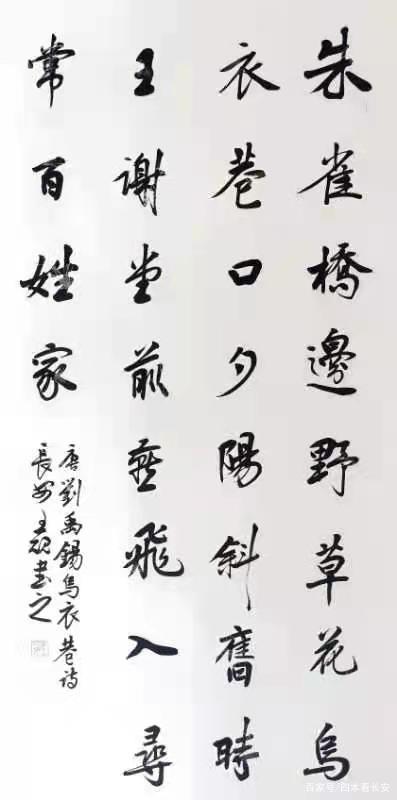 朱雀橋邊野草花烏
衣巷口夕陽斜舊時
王謝堂前燕飛入尋
常百姓家
唐劉禹錫烏衣巷詩
長安王書之
百家号/四本看长安